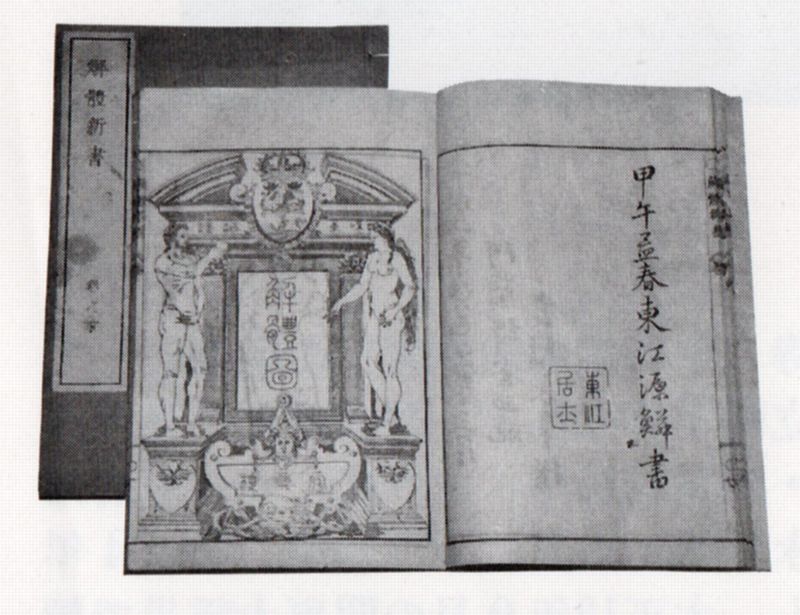 解體新書
甲午孟春東江源鱗書
東江
居士
解體圖